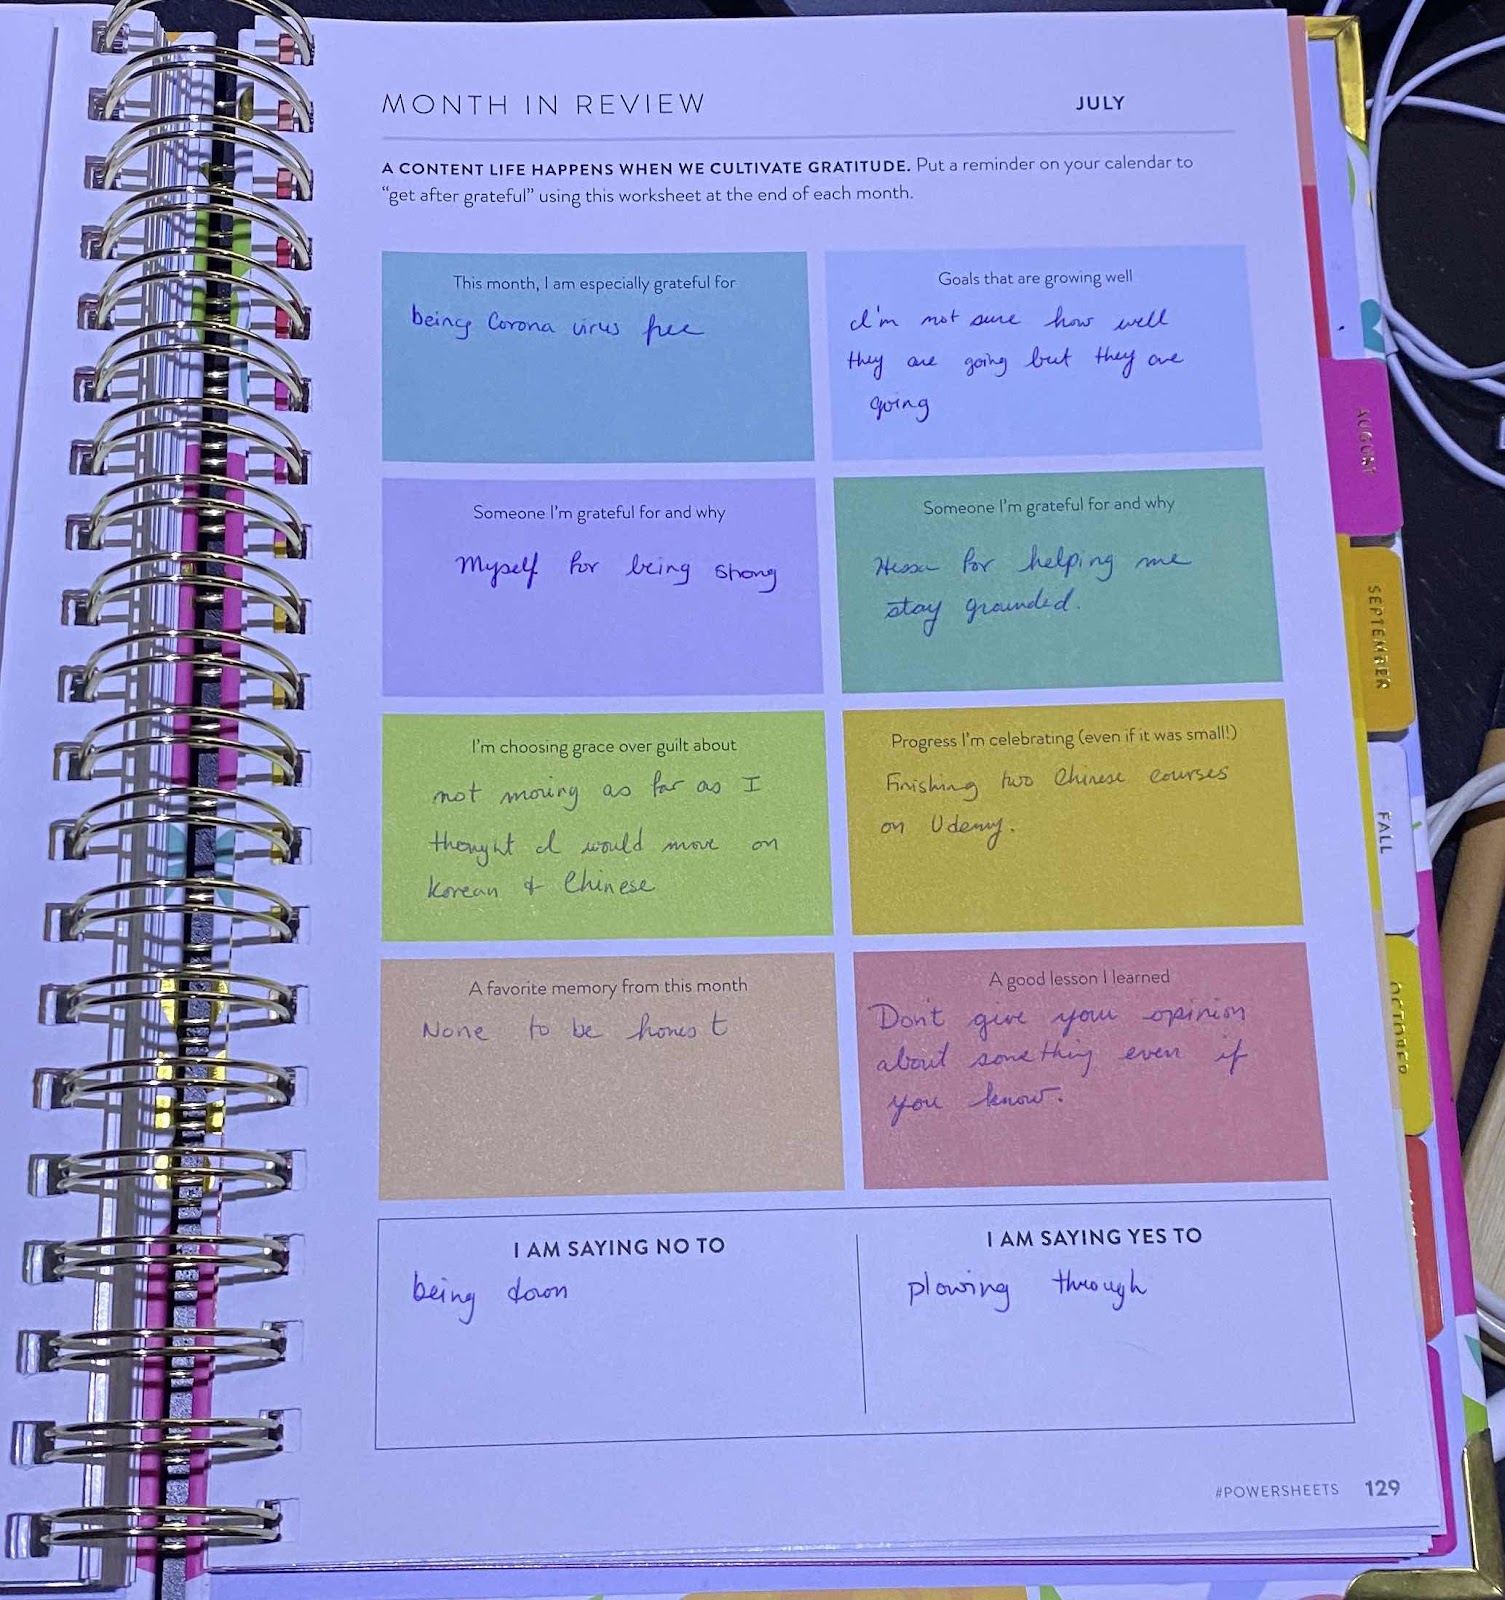 MONTH IN REVIEW
JULY
A CONTENT LIFE HAPPENS WHEN WE CULTIVATE GRATITUDE. Put a reminder on your calendar to
“get after grateful” using this worksheet at the end of each month.
This month, I am especially grateful for
being Corona virus free
Goals that are growing well
I'm not sure how well
they are going but they are
going
Someone I'm grateful for and why
Myself for being strong
Someone I'm grateful for and why
Hessa for helping me
stay grounded.
I'm choosing grace over guilt about
not moving as far as I
thought I would move on
Korean & Chinese
Progress I'm celebrating (even if it was small!)
Finishing two Chinese courses
on Udemy.
A favorite memory from this month
None to be honest
A good lesson I learned
Don't give your opinion
about something even if
you know.
I AM SAYING NO TO
being down
I AM SAYING YES TO
plowing through
#POWERSHEETS 129
AUGUST
SEPTEMBER
FALL
OCTOBER